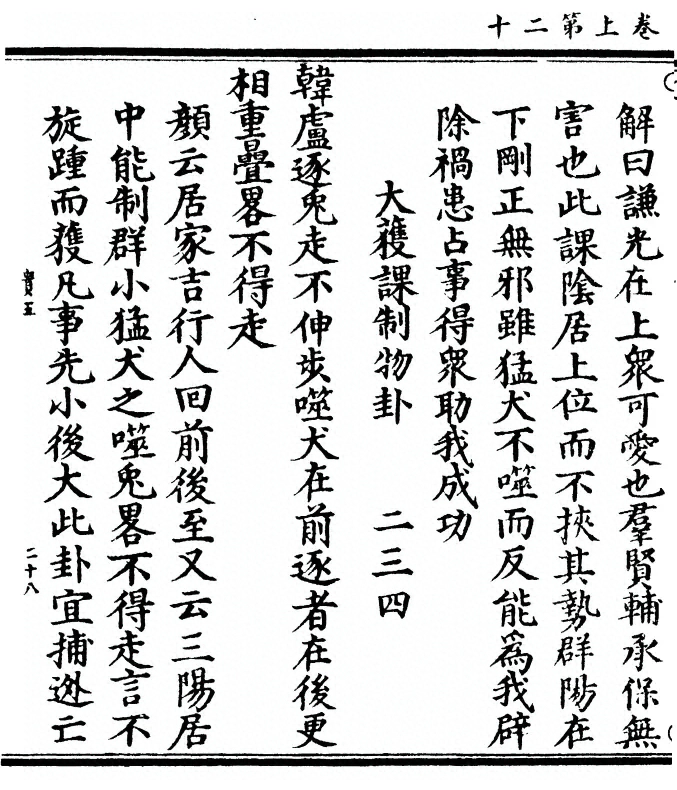 卷上第二十
解曰謙光在上眾可愛也羣賢輔承保無
害也此課陰居上位而不挾其勢群陽在
下剛正無邪雖猛犬不噬而反能為我辟
除禍患占事得眾助我成功
大獲課制物卦 二三四
韓盧逐兔走不伸步噬犬在前逐者在後更
相重疊畧不得走
顏云居家吉行人回前後至又云三陽居
中能制群小猛犬之噬兔畧不得走言不
旋踵而獲凡事先小後大此卦宜捕逃亡
貴五
二十八